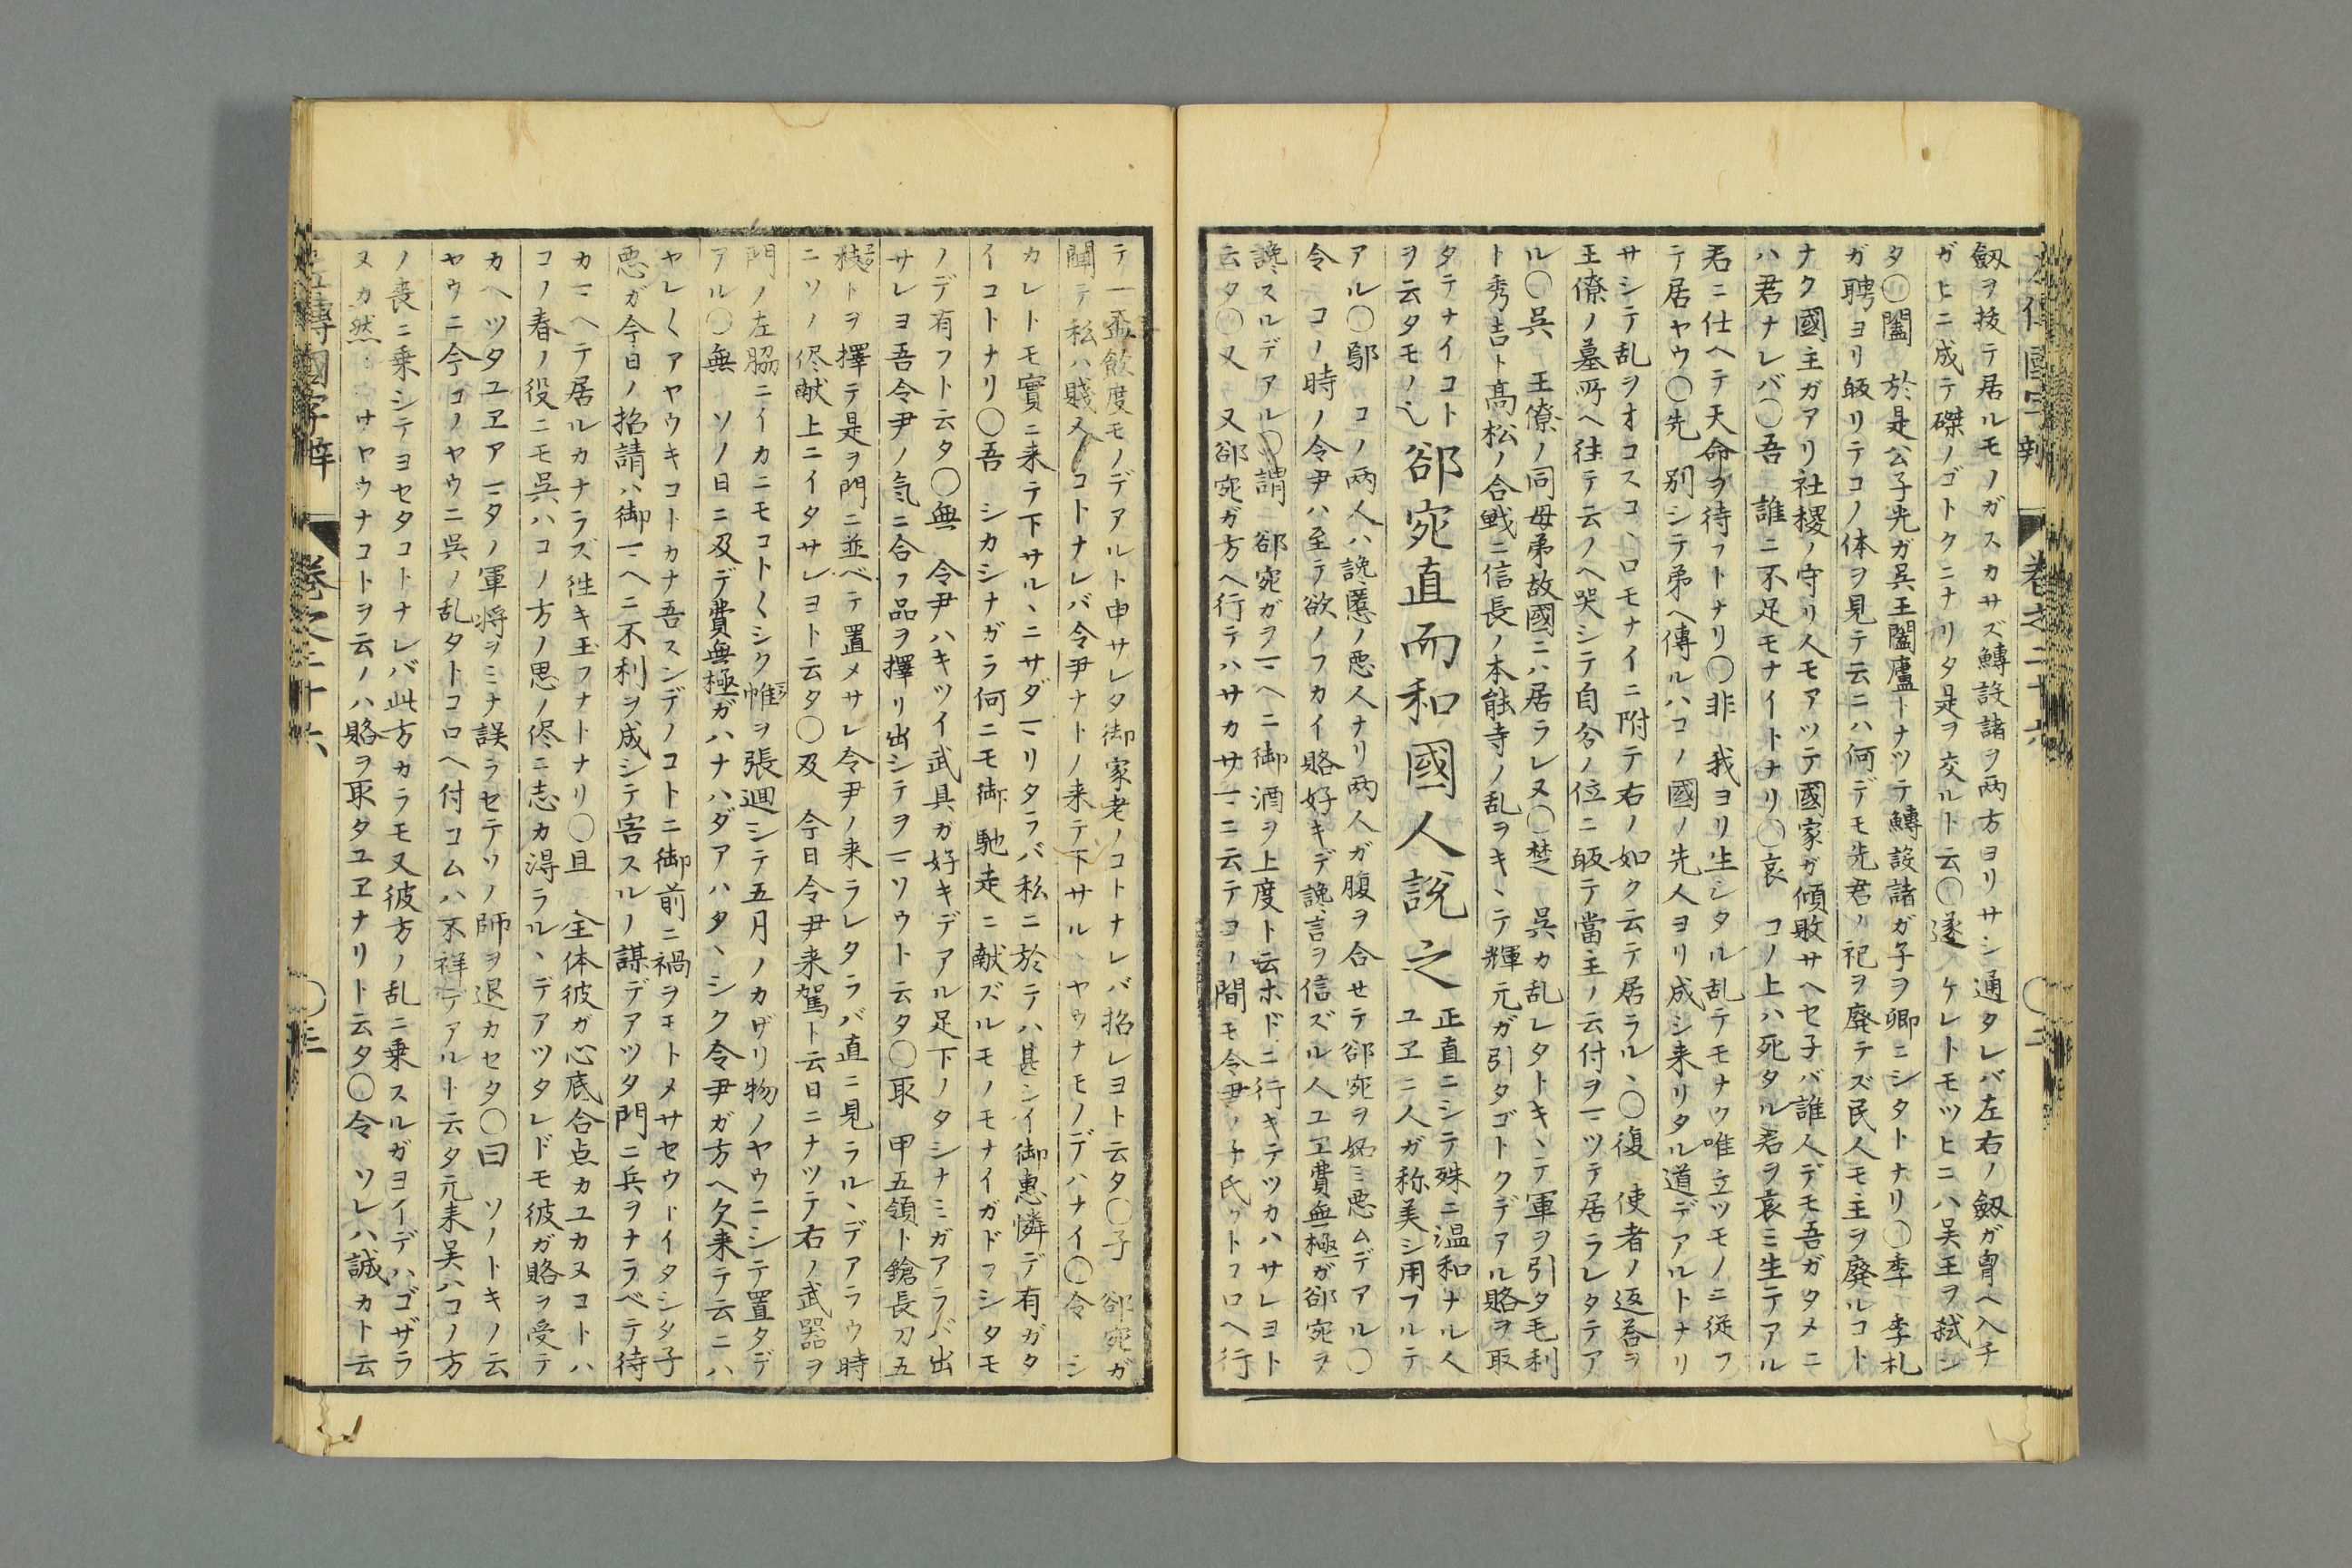 左傳國字辯 卷之二十六 〇二
劔ヲ拔テ居ルモノガスカサズ鱄設諸ヲ兩方ヨリサシ通タレバ左右ノ劔ガ胷ヘ入チ
ガヒニ成テ磔ノゴトクニナリタ是ヲ交ルト云〇遂 ケレトモツヒニハ吴王ヲ弑シ
タ〇闔 於是公子光ガ吴王闔廬トナツテ鱄設諸ガ子ヲ卿ニシタトナリ〇季 季札
ガ聘ヨリ皈リテコノ体ヲ見テ云ニハ何デモ先君ノ祀ヲ廢テズ民人モ主ヲ廢ルコト
ナク國主ガアリ社稷ノ守リ人モアツテ國家ガ傾敗サヘセ子バ誰人デモ吾ガタメニ
ハ君ナレバ〇吾 誰ニ不足モナイトナリ〇哀 コノ上ハ死タル君ヲ哀ミ生テアル
君ニ仕ヘテ天命ヲ待フトナリ〇非 我ヨリ生シタル乱テモナク唯立ツモノニ従フ
テ居ヤウ〇先 別シテ弟ヘ傳ルハコノ國ノ先人ヨリ成シ来リタル道デアルトナリ
サシテ乱ヲオコスコヽロモナイニ附テ右ノ如ク云テ居ラルヽ〇復 使者ノ返荅ヲ
王僚ノ墓所ヘ往テ云ノヘ哭シテ自分ノ位ニ皈テ當主ノ云付ヲマツテ居ラレタテア
ル〇吴 王僚ノ同母弟故國ニハ居ラレヌ〇楚 呉カ乱レタトキヽテ軍ヲ引タ毛利
ト秀吉ト髙松ノ合戦ニ信長ノ本能寺ノ乱ヲキヽテ輝元ガ引タゴトクデアル賂ヲ取
タテナイコト
ヲ云タモノ也 郤宛直而和國人說之 正直ニシテ殊ニ温和ナル人
ユヱニ人ガ称美シ用フルテ
アル〇鄢 コノ兩人ハ讒慝ノ悪人ナリ兩人ガ腹ヲ合せテ郤宛ヲ妬ミ悪ムデアル〇
令 コノ時ノ令尹ハ至テ欲ノフカイ賂好キデ讒言ヲ信ズル人ユヱ費無極ガ郤宛ヲ
讒スルデアル〇謂 郤宛ガヲマヘニ御酒ヲ上度ト云ホドニ行キテツカハサレヨト
云タ〇又 又郤宛ガ方ヘ行テハサカサマニ云テコノ間モ令尹ノ子氏ノトコロヘ行
テ一盃飲度モノデアルト申サレタ御家老ノコトナレバ招レヨト云タ〇子 郤宛ガ
聞テ私ハ賤人ノコトナレバ令尹ナトノ来テ下サルヽヤウナモノデハナイ〇令 シ
カレトモ實ニ来テ下サルヽニサダマリタラバ私ニ於テハ甚シイ御惠憐デ有ガタ
イコトナリ〇吾 シカシナガラ何ニモ御馳走ニ献ズルモノモナイガドフシタモ
ノデ有フト云タ〇無 令尹ハキツイ武具ガ好キデアル足下ノタシナミガアラバ出
サレヨ吾令尹ノ気ニ合フ品ヲ擇リ出シテヲマソウト云タ〇取 甲五領ト鎗長刀五
棧トヲ擇テ是ヲ門ニ並ベテ置メサレ令尹ノ来ラレタラバ直ニ見ラルヽデアラウ時
ニソノ侭献上ニイタサレヨト云タ〇及 今日令尹来駕ト云日ニナツテ右ノ武器ヲ
門ノ左脇ニイカニモコト〳〵シク帷ヲ張廻シテ五月ノカザリ物ノヤウニシテ置タデ
アル〇無 ソノ日ニ及デ費無極ガハナハダアハタヽシク令尹ガ方ヘ欠来テ云ニハ
ヤレ〳〵アヤウキコトカナ吾スンデノコトニ御前ニ禍ヲモトメサセウトイタシタ子
悪ガ今日ノ招請ハ御マヘニ不利ヲ成シテ害スルノ謀デアツタ門ニ兵ヲナラベテ待
カマヘテ居ルカナラズ徃キ玉フナトナリ〇且 全体彼ガ心底合点カユカヌコトハ
コノ春ノ役ニモ呉ハコノ方ノ思ノ侭ニ志カ淂ラルヽデアツタレドモ彼ガ賂ヲ受テ
カヘツタユヱアマタノ軍将ヲミナ誤ラセテソノ師ヲ退カセタ〇曰 ソノトキノ云
ヤウニ今コノヤウニ呉ノ乱タトコロヘ付コムハ不祥デアルト云タ元来吴ハコノ方
ノ喪ニ乗シテヨセタコトナレバ此方カラモ又彼方ノ乱ニ乗スルガヨイデハゴザラ
ヌカ然 サヤウナコトヲ云ノハ賂ヲ取タユヱナリト云タ〇令 ソレハ誠カト云
左傳國字辯 卷之二十六 〇三